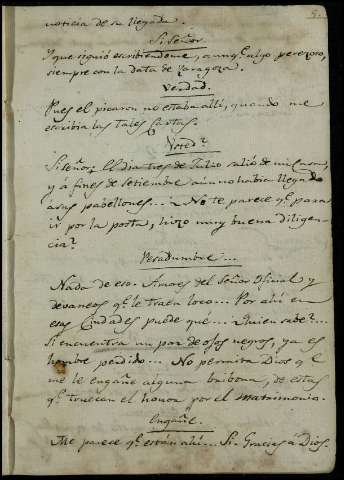 noticia de su llegada.
Si Señor.
Y que siguió escribiendome, aunq.e algo perezoso,
siempre con la data de Zaragoza.
Verdad.
Pues el picaron no estaba allí, quando me
escribia las tales Cartas.
Si Señor; El dia tres de Julio salió de mi casa,
y á fines de Setiembre aun no habia llegado
á sus pabellones... No te parece q.e para
ir por la posta, hizo muy buena diligen-
cia?
Pesadumbre...
Nada de eso. Amores del Señor Oficial y
devaneos q.e le traen loco... Por ahi en
esas Ciudades puede que... Quien sabe?...
Si encuentra un par de ojos negros, ya es
hombre perdido... No permita Dios q.e
me le engañe alguna bribona, de estas
q.e truecan el honor por el matrimonio.
Engañe.
Me parece q.e están ahí... Si. Gracias á Dios.